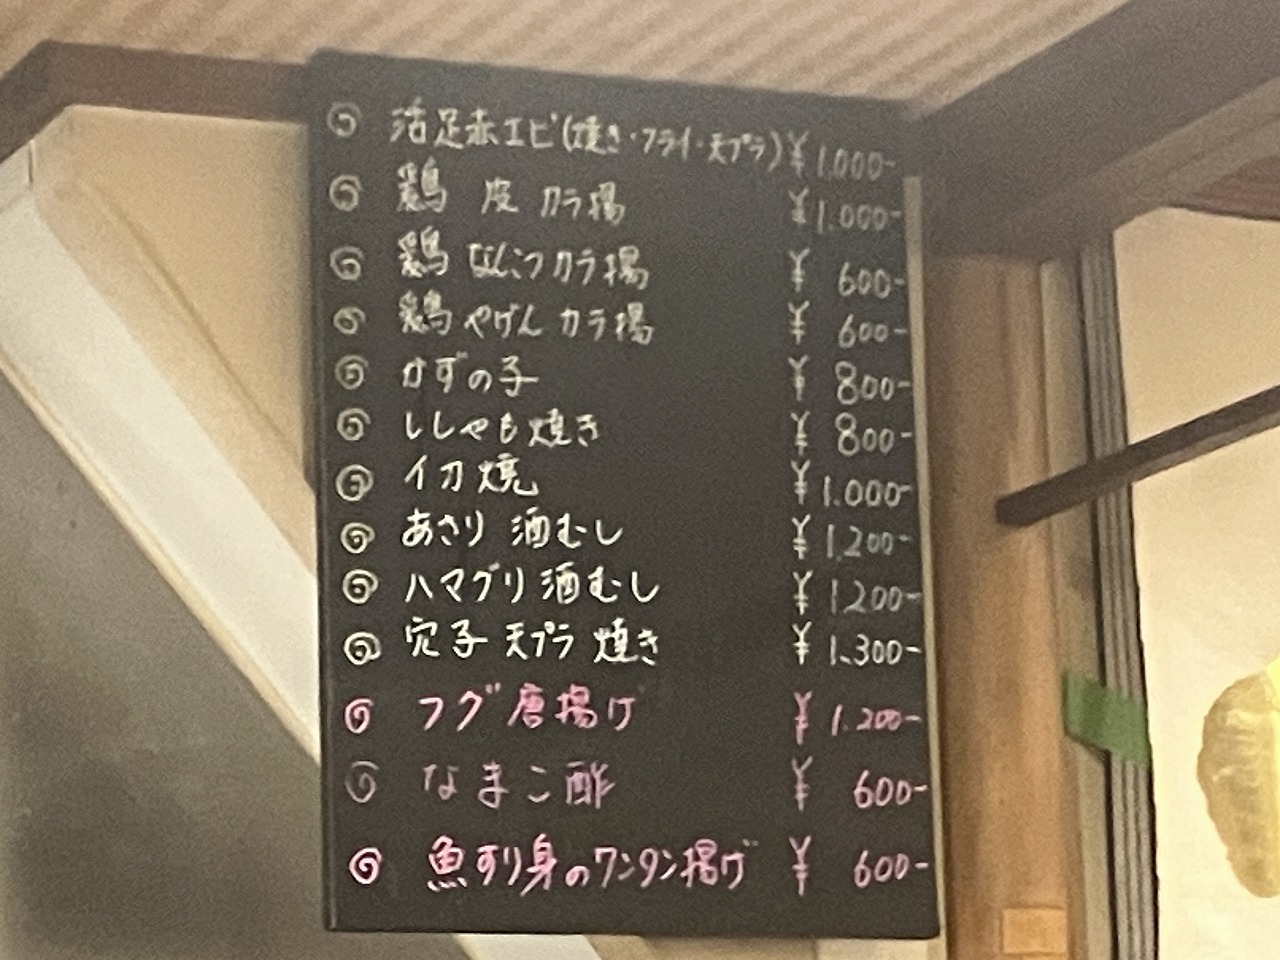 活足赤エビ(焼き・フライ・天プラ) ¥1,000-
鶏 皮 カラ揚 ¥1.000-
鶏 なんこつカラ揚 ¥600-
鶏 やげん カラ揚 ¥600-
かずの子 ¥800-
ししゃも焼き ¥800-
イカ焼 ¥1.000-
あさり 酒むし ¥1,200-
ハマグリ酒むし ¥1200-
穴子 天プラ 焼き ¥1.300-
フグ唐揚げ ¥1.200-
なまこ酢 ¥600-
魚すり身のワンタン揚げ ¥600-